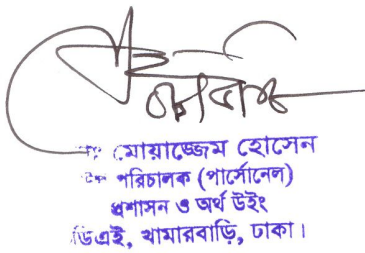 মোয়াজ্জেম হোসেন
পরিচালক (পার্সোনেল)
প্রশাসন ও অর্থ উইং
ডিএই, খামারবাড়ি, ঢাকা।